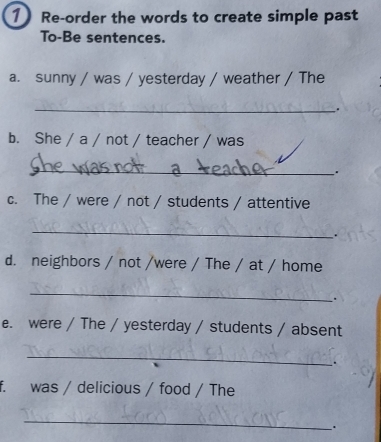 1 Re-order the words to create simple past
To-Be sentences.
a. sunny / was / yesterday / weather / The
.
b. She / a / not / teacher / was
She was not a teacher .
c. The / were / not / students / attentive
.
d. neighbors / not /were / The / at / home
.
e. were / The / yesterday / students / absent
.
f. was / delicious / food / The
.